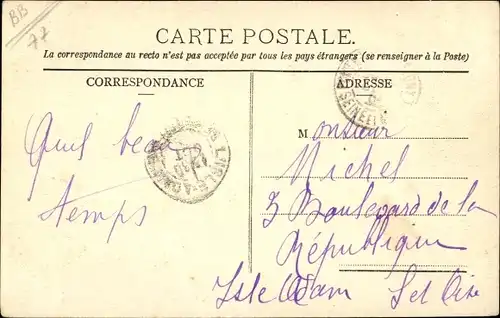 BB
77
CARTE POSTALE.
La correspondance au recto n'est pas acceptée par tous les pays étrangers (se renseigner à la Poste)
CORRESPONDANCE
ADRESSE
Quel beau
temps
Monsieur
Michel
3 Boulevard de la
République
Isle Adam Set Oise